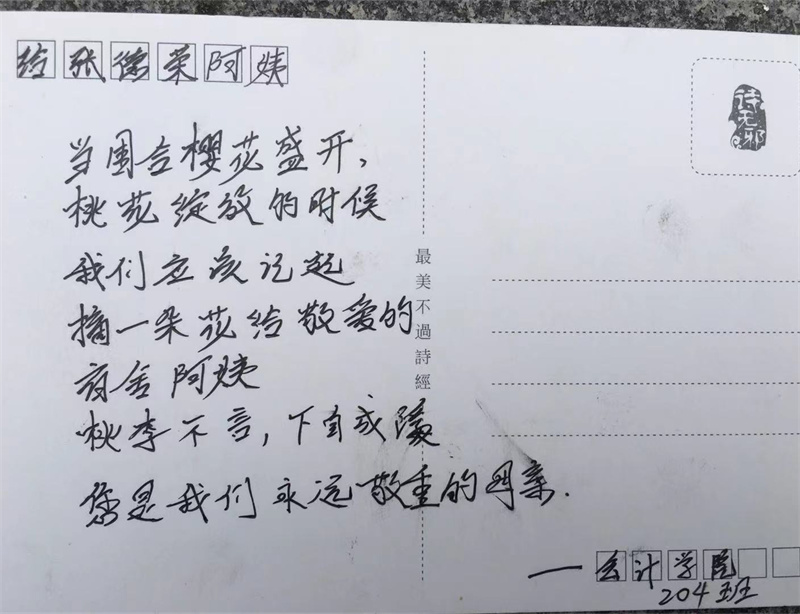 给张德荣阿姨
诗无邪
当围合樱花盛开,
桃花绽放的时候
我们应该记起
摘一朵花给敬爱的
宿舍阿姨
桃李不言,下自成蹊
您是我们永远敬重的母亲.
最美不過詩經
一会计学院
204班